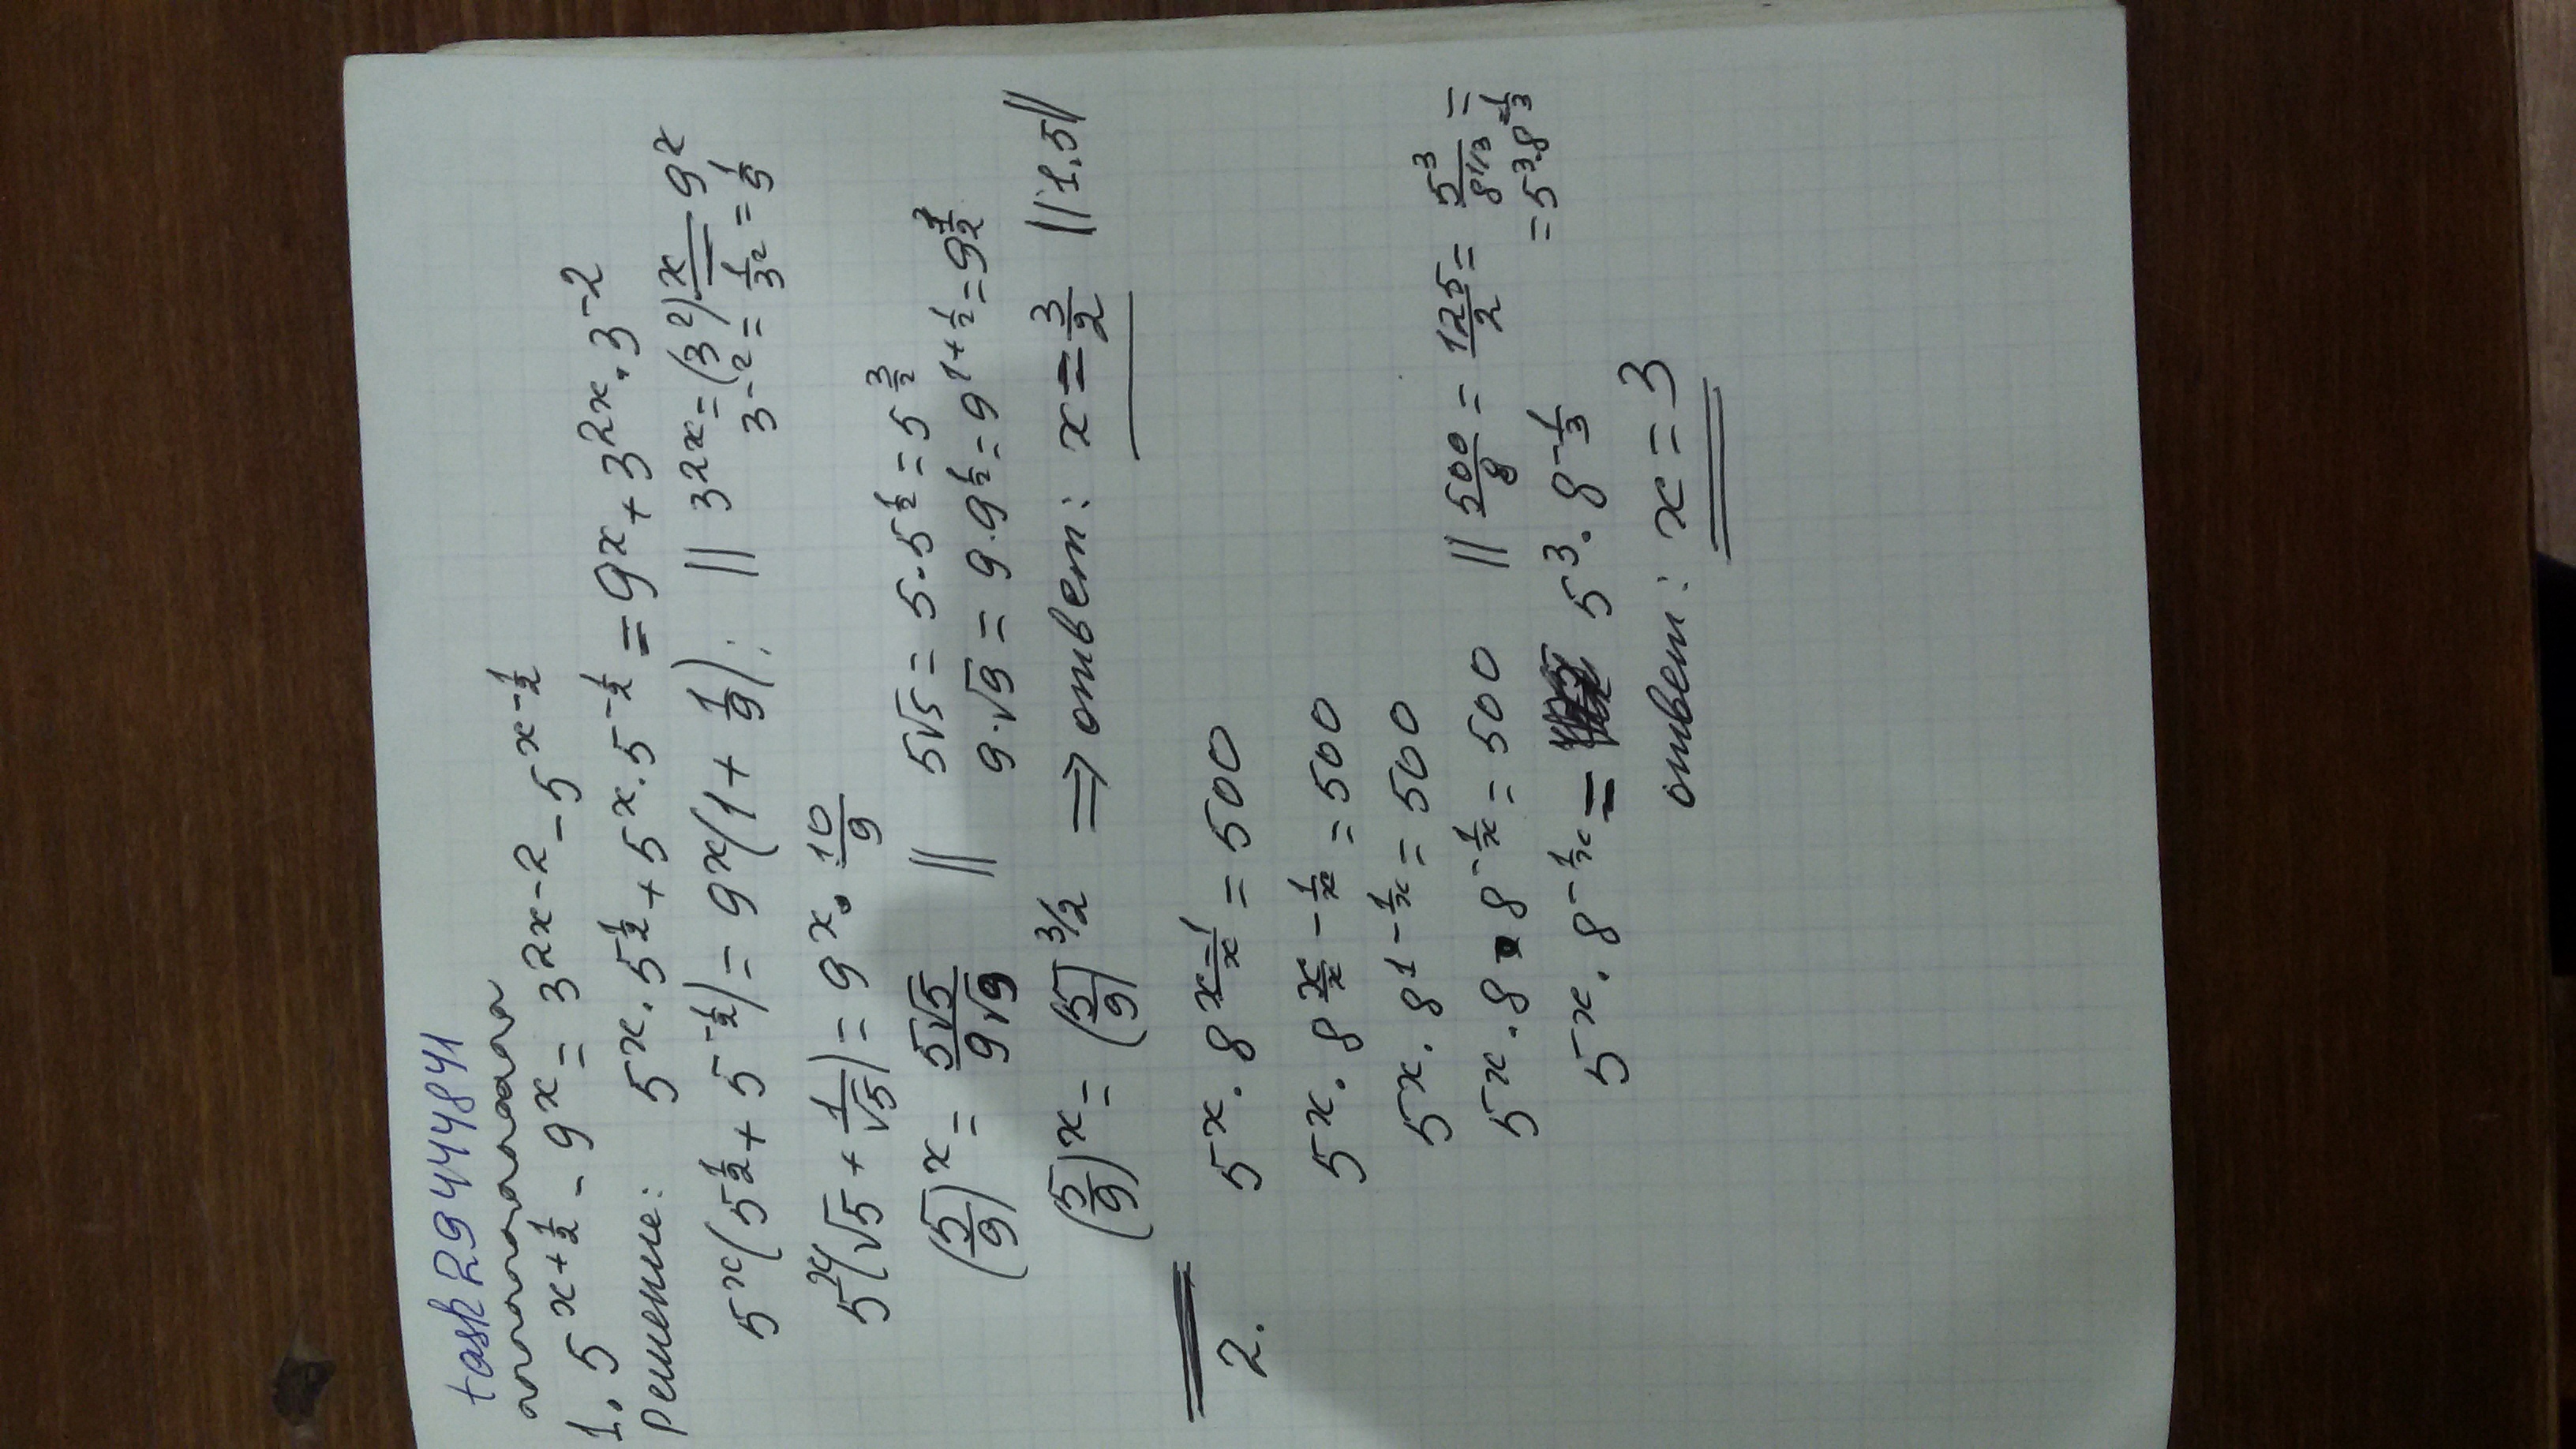 task 29444841
1. 5^(x+1/2) - 9^x = 3^(2x-2) - 5^(x-1/2)
Решение: 5^x · 5^(1/2) + 5^x · 5^(-1/2) = 9^x + 3^(2x) · 3^(-2)
5^x(5^(1/2) + 5^(-1/2)) = 9^x(1 + 1/9); || 3^(2x) = (3^2)^x = 9^x
3^(-2) = 1/3^2 = 1/9
5^x(√5 + 1/√5) = 9^x · 10/9
(5/9)^x = 5√5/9√9 || 5√5 = 5·5^(1/2) = 5^(3/2)
9·√9 = 9·9^(1/2) = 9^(1+1/2) = 9^(3/2)
(5/9)^x = (5/9)^(3/2) ⇒ ответ: x = 3/2 ||1,5||
2. 5^x · 8^((x-1)/x) = 500
5^x · 8^(x/x - 1/x) = 500
5^x · 8^(1 - 1/x) = 500
5^x · 8 · 8^(-1/x) = 500 || 500/8 = 125/2 = 5^3/8^(1/3) =
= 5^3·8^(-1/3)
5^x · 8^(-1/x) = 5^3 · 8^(-1/3)
ответ: x = 3